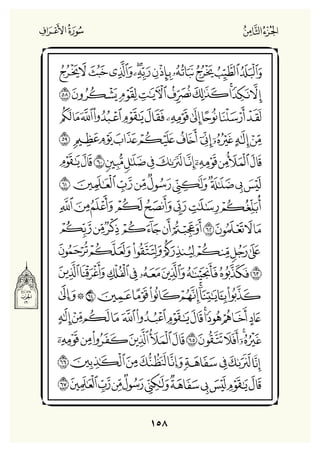 سُورَةُ الأَعْرَافِ الجُزْءُ الثَّامِنُ
وَٱلْبَلَدُ ٱلطَّيِّبُ يَخْرُجُ نَبَاتُهُۥ بِإِذْنِ رَبِّهِۦ ۖ وَٱلَّذِى خَبُثَ لَا يَخْرُجُ
إِلَّا نَكِدًا ۚ كَذَٰلِكَ نُصَرِّفُ ٱلْءَايَٰتِ لِقَوْمٍ يَشْكُرُونَ ٥٨
لَقَدْ أَرْسَلْنَا نُوحًا إِلَىٰ قَوْمِهِۦ فَقَالَ يَٰقَوْمِ ٱعْبُدُوا۟ ٱللَّهَ مَا لَكُم
مِّنْ إِلَٰهٍ غَيْرُهُۥٓ إِنِّىٓ أَخَافُ عَلَيْكُمْ عَذَابَ يَوْمٍ عَظِيمٍ ٥٩
قَالَ ٱلْمَلَأُ مِن قَوْمِهِۦٓ إِنَّا لَنَرَىٰكَ فِى ضَلَٰلٍ مُّبِينٍ ٦٠ قَالَ يَٰقَوْمِ
لَيْسَ بِى ضَلَٰلَةٌ وَلَٰكِنِّى رَسُولٌ مِّن رَّبِّ ٱلْعَٰلَمِينَ ٦١
أُبَلِّغُكُمْ رِسَٰلَٰتِ رَبِّى وَأَنصَحُ لَكُمْ وَأَعْلَمُ مِنَ ٱللَّهِ
مَا لَا تَعْلَمُونَ ٦٢ أَوَعَجِبْتُمْ أَن جَآءَكُمْ ذِكْرٌ مِّن رَّبِّكُمْ
عَلَىٰ رَجُلٍ مِّنكُمْ لِيُنذِرَكُمْ وَلِتَتَّقُوا۟ وَلَعَلَّكُمْ تُرْحَمُونَ
٦٣ فَكَذَّبُوهُ فَأَنجَيْنَٰهُ وَٱلَّذِينَ مَعَهُۥ فِى ٱلْفُلْكِ وَأَغْرَقْنَا ٱلَّذِينَ
كَذَّبُوا۟ بِـَٔايَٰتِنَآ ۚ إِنَّهُمْ كَانُوا۟ قَوْمًا عَمِينَ ٦٤ ۞ وَإِلَىٰ
عَادٍ أَخَاهُمْ هُودًا ۗ قَالَ يَٰقَوْمِ ٱعْبُدُوا۟ ٱللَّهَ مَا لَكُم مِّنْ إِلَٰهٍ
غَيْرُهُۥٓ ۚ أَفَلَا تَتَّقُونَ ٦٥ قَالَ ٱلْمَلَأُ ٱلَّذِينَ كَفَرُوا۟ مِن قَوْمِهِۦٓ
إِنَّا لَنَرَىٰكَ فِى سَفَاهَةٍ وَإِنَّا لَنَظُنُّكَ مِنَ ٱلْكَٰذِبِينَ ٦٦
قَالَ يَٰقَوْمِ لَيْسَ بِى سَفَاهَةٌ وَلَٰكِنِّى رَسُولٌ مِّن رَّبِّ ٱلْعَٰلَمِينَ ٦٧
١٥٨